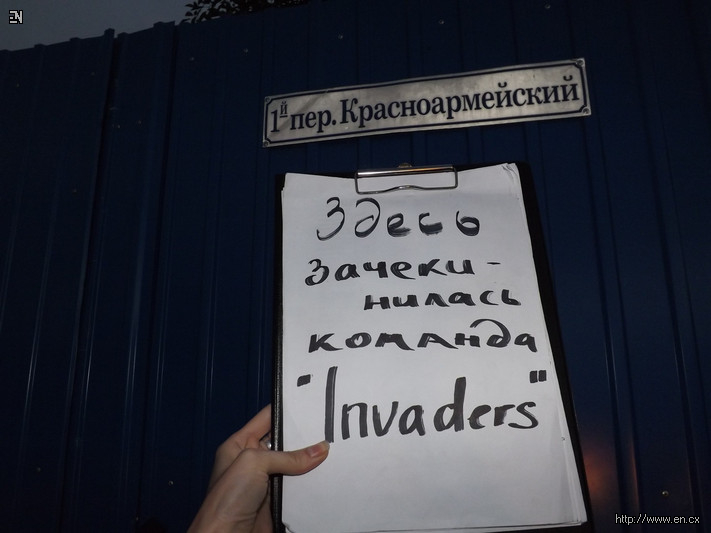 EN
1й пер. Красноармейский
Здесь
зачеки-
нилась
команда
"Invaders"
http://www.en.cx